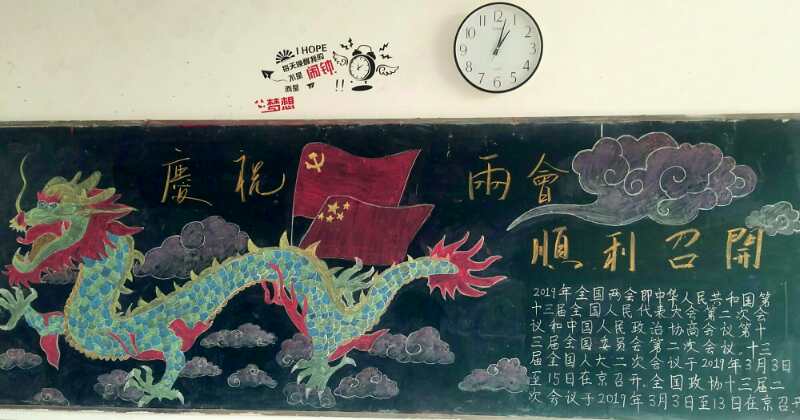 I HOPE
每天唤醒我的
不是 闹钟
而是 !!
梦想
12 1 2 3 4 5 6 7 8 9 10 11
慶祝 兩會
順利召開
2019年全国两会即中华人民共和国第
十三届全国人民代表大会第二次会
议和中国人民政治协商会议第十
三届全国委员会第二次会议.十三
届全国人大二次会议于2019年3月3日
至15日在京召开.全国政协十三届二
次会议于2019年3月3日至13日在京召开